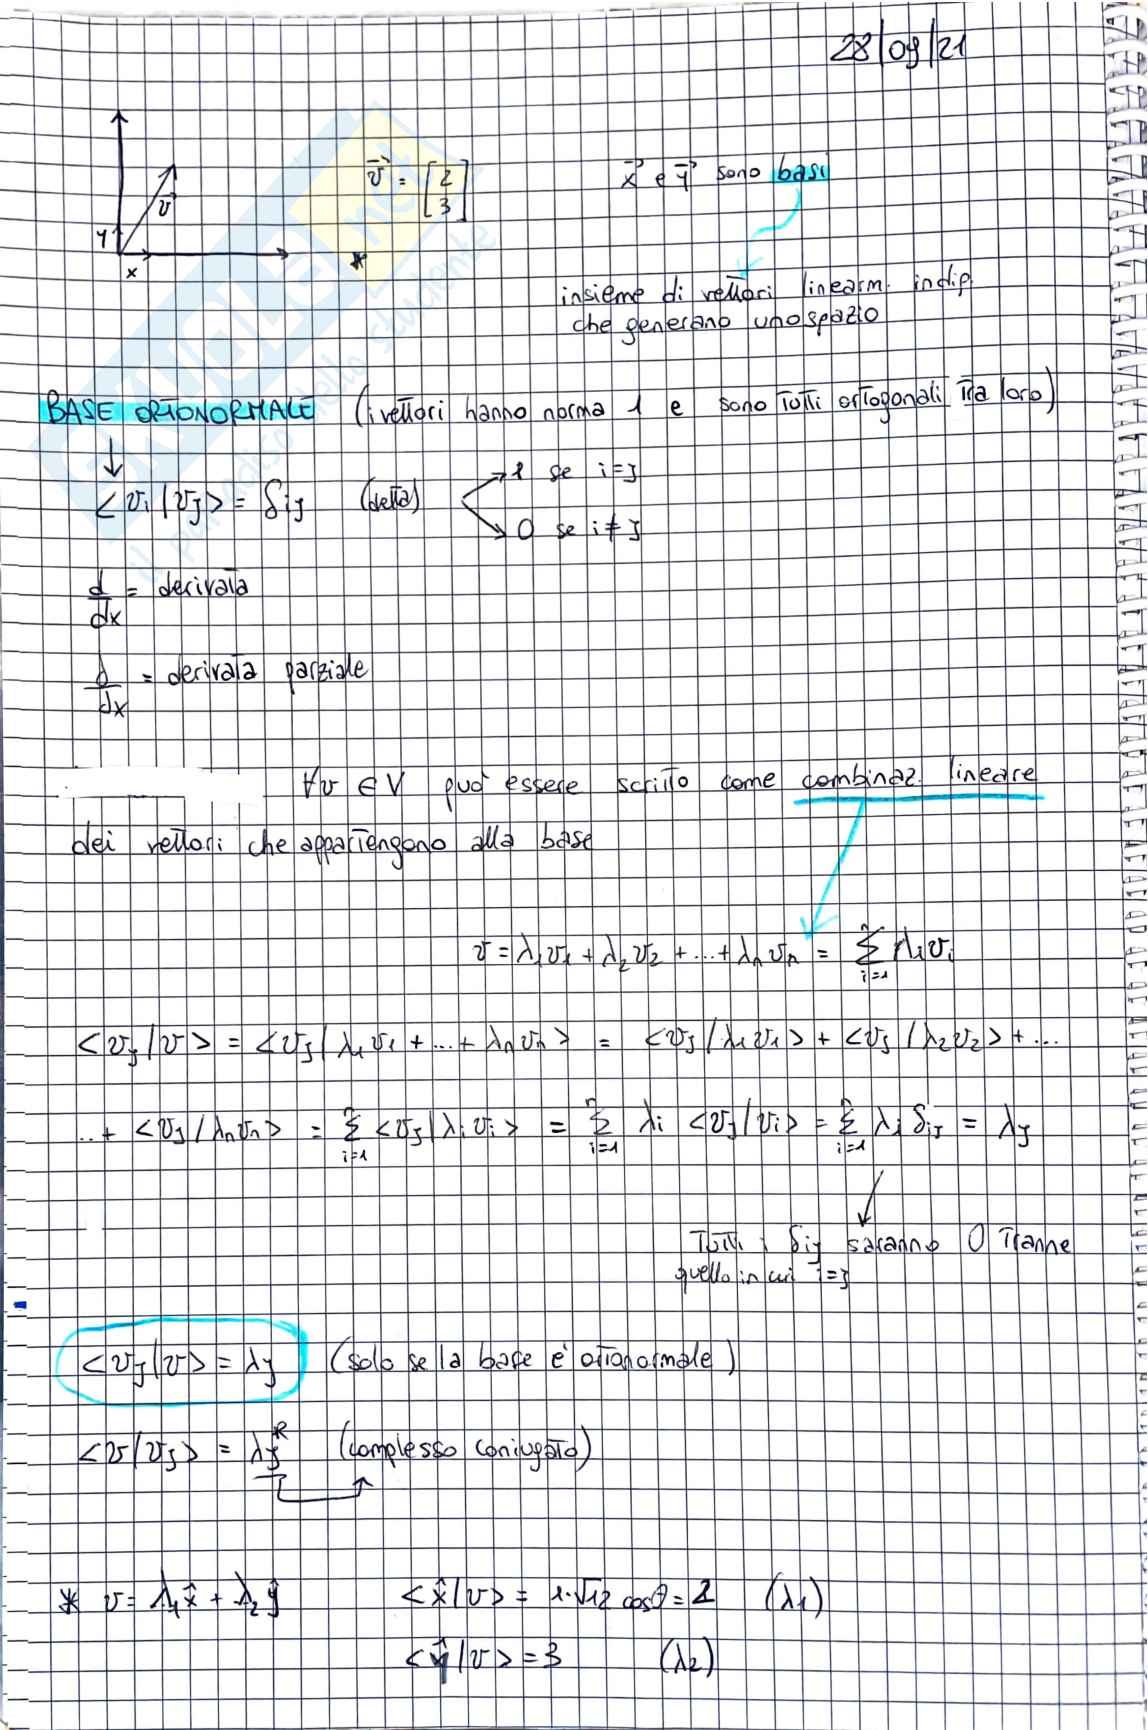 28/09/21
v⃗ = [2 3]
x⃗ e y⃗ sono basi
v⃗
y
x
*
insieme di vettori linearm. indip.
che generano uno spazio
BASE ORTONORMALE (i vettori hanno norma 1 e sono tutti ortogonali tra loro)
<vi|vj> = δij (delta)
1 se i=j
0 se i≠j
d/dx = derivata
∂/dx = derivata parziale
∀v ∈ V può essere scritto come combinaz. lineare
dei vettori che appartengono alla base
v = λ1v1 + λ2v2 + ... + λnvn = Σ(i=1, n) λivi
<vj|v> = <vj|λ1v1 + ... + λnvn> = <vj|λ1v1> + <vj|λ2v2> + ...
...+ <vj|λnvn> = Σ(i=1, n) <vj|λivi> = Σ(i=1, n) λi <vj|vi> = Σ(i=1, n) λi δij = λj
Tutti i δij saranno 0 tranne
quello in cui i=j
<vj|v> = λj (solo se la base è ortonormale)
<v|vj> = λj* (complesso coniugato)
* v = λ1x̂ + λ2ŷ <x̂|v> = 1·√12 cosθ = 2 (λ1)
<ŷ|v> = 3 (λ2)